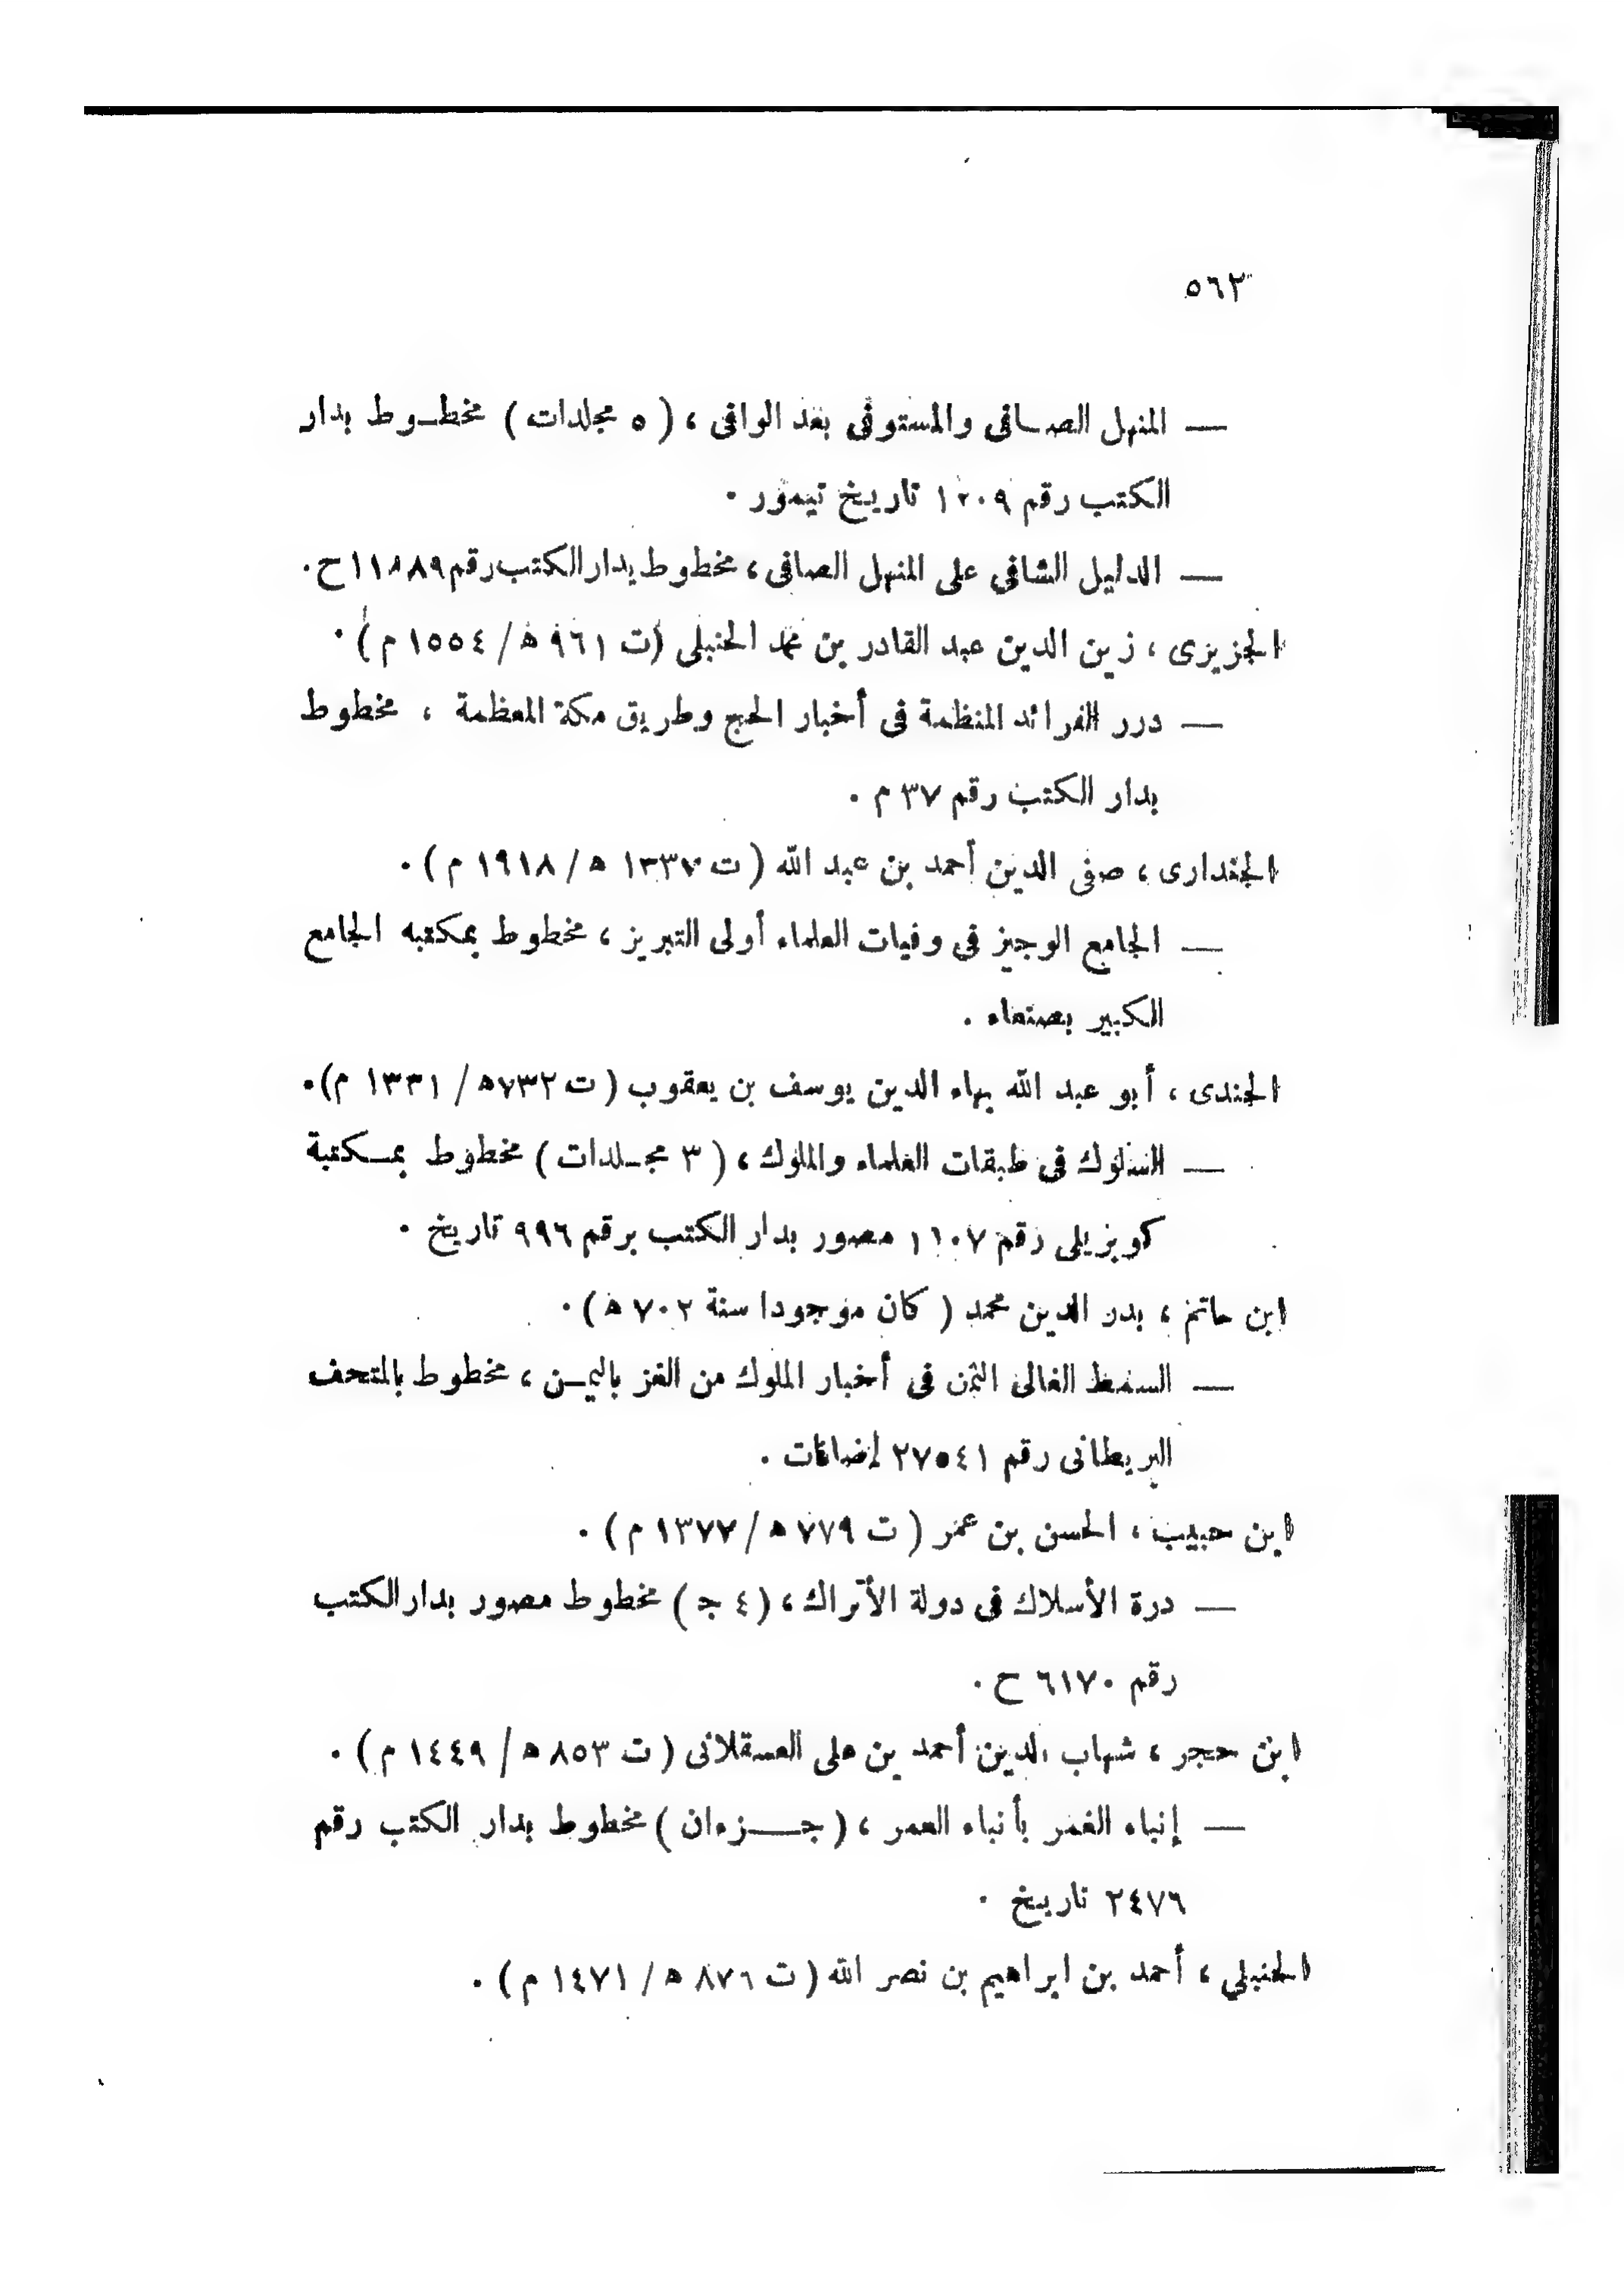 ٥٦٣
— المنهل الصافى والمستوفى بعد الوافى ، ( ٥ مجلدات ) مخطوط بدار
الكتب رقم ١٢٠٩ تاريخ تيمور .
— الدليل الشافي على المنهل الصافى ، مخطوط بدار الكتب رقم ١١٨٨٩ ح .
الجزيزى ، زين الدين عبد القادر بن محمد الحنبلى (ت ٩٦١ ه / ١٥٥٤ م) .
— درر الفرائد المنظمة فى أخبار الحج وطريق مكة المعظمة ، مخطوط
بدار الكتب رقم ٣٧ م .
الجندارى ، صفى الدين أحمد بن عبد الله ( ت ١٣٣٧ ه / ١٩١٨ م ) .
— الجامع الوجيز فى وفيات العلماء أولى التبريز ، مخطوط بمكتبه الجامع
الكبير بصنعاء .
الجندى ، أبو عبد الله بهاء الدين يوسف بن يعقوب ( ت ٧٣٢ه / ١٣٣١ م) .
— السلوك فى طبقات العلماء والملوك ، ( ٣ مجلدات ) مخطوط بمكتبة
كوبزيلى رقم ١١٠٧ مصور بدار الكتب برقم ٩٩٦ تاريخ .
ابن حاتم ، بدر الدين محمد ( كان موجودا سنة ٧٠٢ ه ) .
— السمط الغالى الثمن فى أخبار الملوك من الغز باليمن ، مخطوط بالمتحف
البريطانى رقم ٢٧٥٤١ إضافات .
ابن حبيب ، الحسن بن عمر ( ت ٧٧٩ ه / ١٣٧٧ م ) .
— درة الأسلاك فى دولة الأتراك ، ( ٤ ج ) مخطوط مصور بدار الكتب
رقم ٦١٧٠ ح .
ابن حجر ، شهاب الدين أحمد بن على العسقلانى ( ت ٨٥٣ ه / ١٤٤٩ م ) .
— إنباء الغمر بأنباء العمر ، ( جزءان ) مخطوط بدار الكتب رقم
٢٤٧٦ تاريخ .
الحنبلي ، أحمد بن ابراهيم بن نصر الله ( ت ٨٧٦ ه / ١٤٧١ م ) .